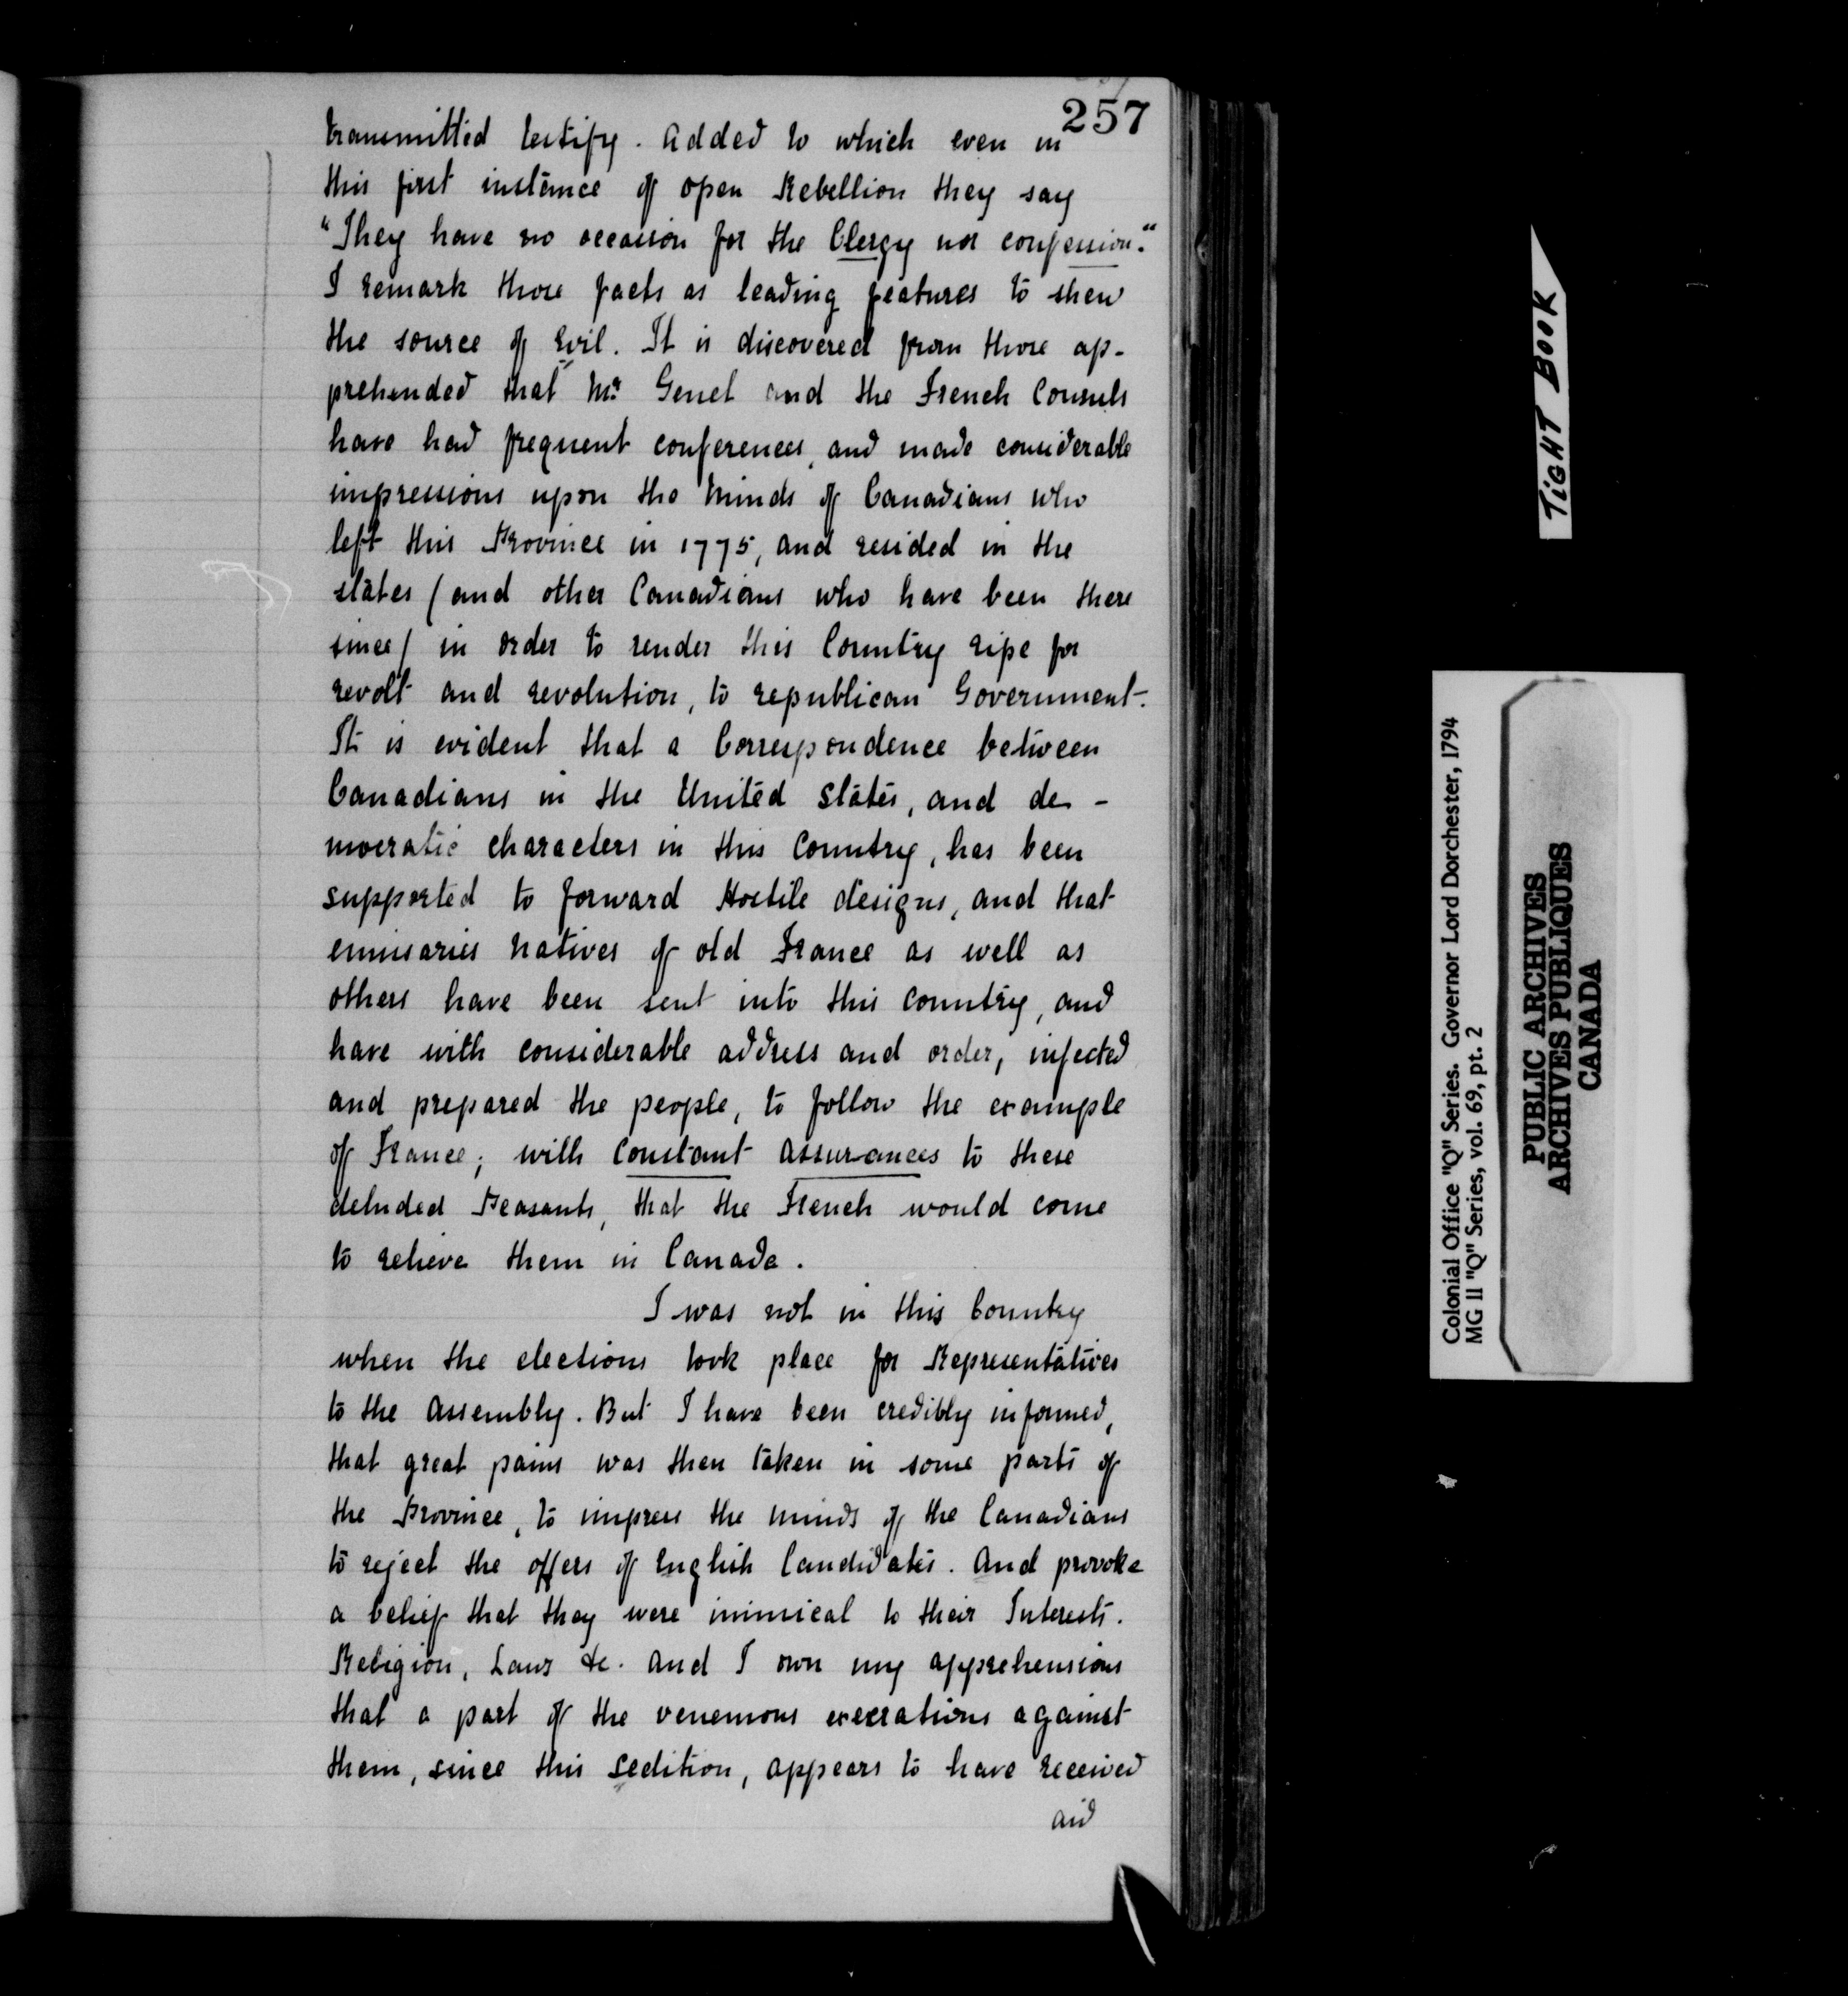 257
transmitted testify. Added to which even in
this first instance of open Rebellion they say
"They have no occasion for the Clergy nor confession."
I remark those facts as leading features to shew
the source of Evil. It is discovered from those ap-
prehended that Mr. Genet and the French Consuls
have had frequent conferences, and made considerable
impressions upon the minds of Canadians who
left this Province in 1775, and resided in the
states (and other Canadians who have been there
since) in order to render this Country ripe for
revolt and revolution, to republican Government.
It is evident that a Correspondence between
Canadians in the United States, and de-
mocratic characters in this Country, has been
supported to forward Hostile designs, and that
emisaries natives of old France as well as
others have been sent into this country, and
have with considerable address and order, infected
and prepared the people, to follow the example
of France; with constant assurances to these
deluded Peasants, that the French would come
to relieve them in Canada.
I was not in this Country
when the elections took place for Representatives
to the Assembly. But I have been credibly informed,
that great pains was then taken in some parts of
the Province, to impress the minds of the Canadians
to reject the offers of English Candidates. And provoke
a belief that they were inimical to their Interests.
Religion, Laws &c. and I own my apprehensions
that a part of the venemous execrations against
them, since this sedition, appears to have received
aid
TIGHT BOOK
Colonial Office "Q" Series. Governor Lord Dorchester, 1794
MG 11 "Q" Series, vol. 69, pt. 2
PUBLIC ARCHIVES
ARCHIVES PUBLIQUES
CANADA